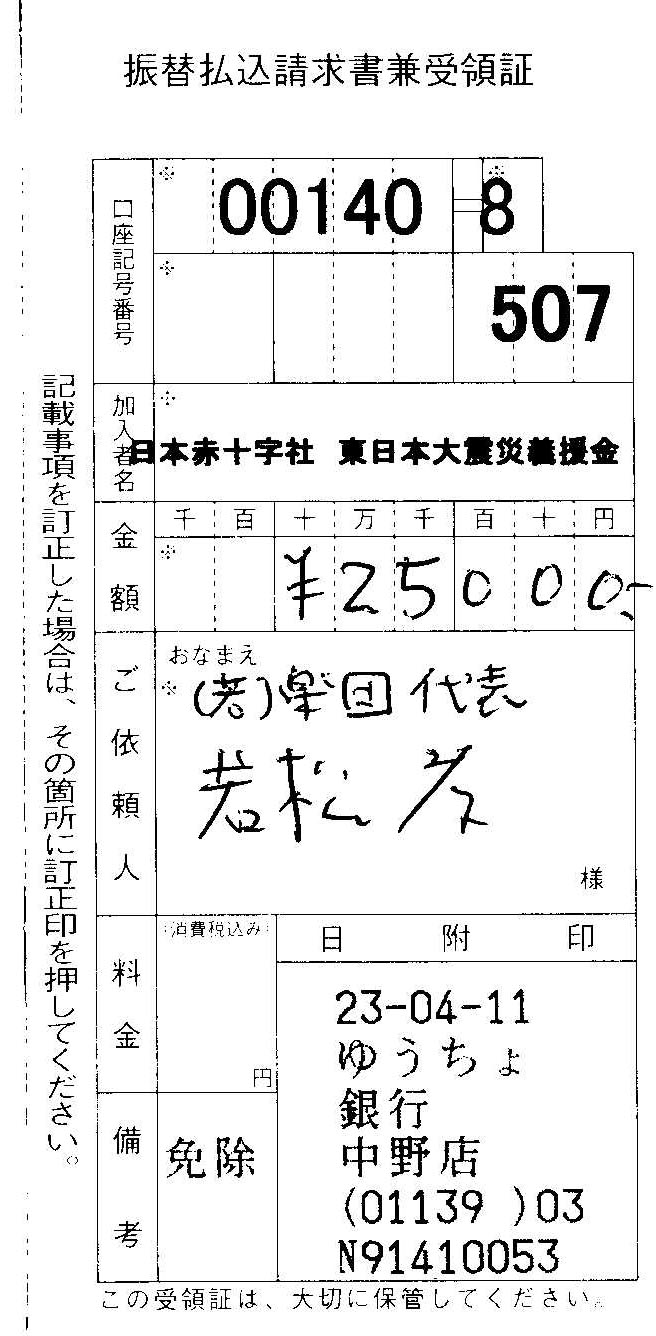 振替払込請求書兼受領証
口座記号番号
※
00140=8
※
507
加入者名
※
日本赤十字社 東日本大震災義援金
金額
千 百 十 万 千 百 十 円
※
¥25000-
ご依頼人
おなまえ
※
(若)楽団 代表
若松
様
料金
(消費税込み)
円
日附印
23-04-11
ゆうちょ
銀行
中野店
(01139 )03
N91410053
備考
免除
この受領証は、大切に保管してください。
記載事項を訂正した場合は、その箇所に訂正印を押してください。